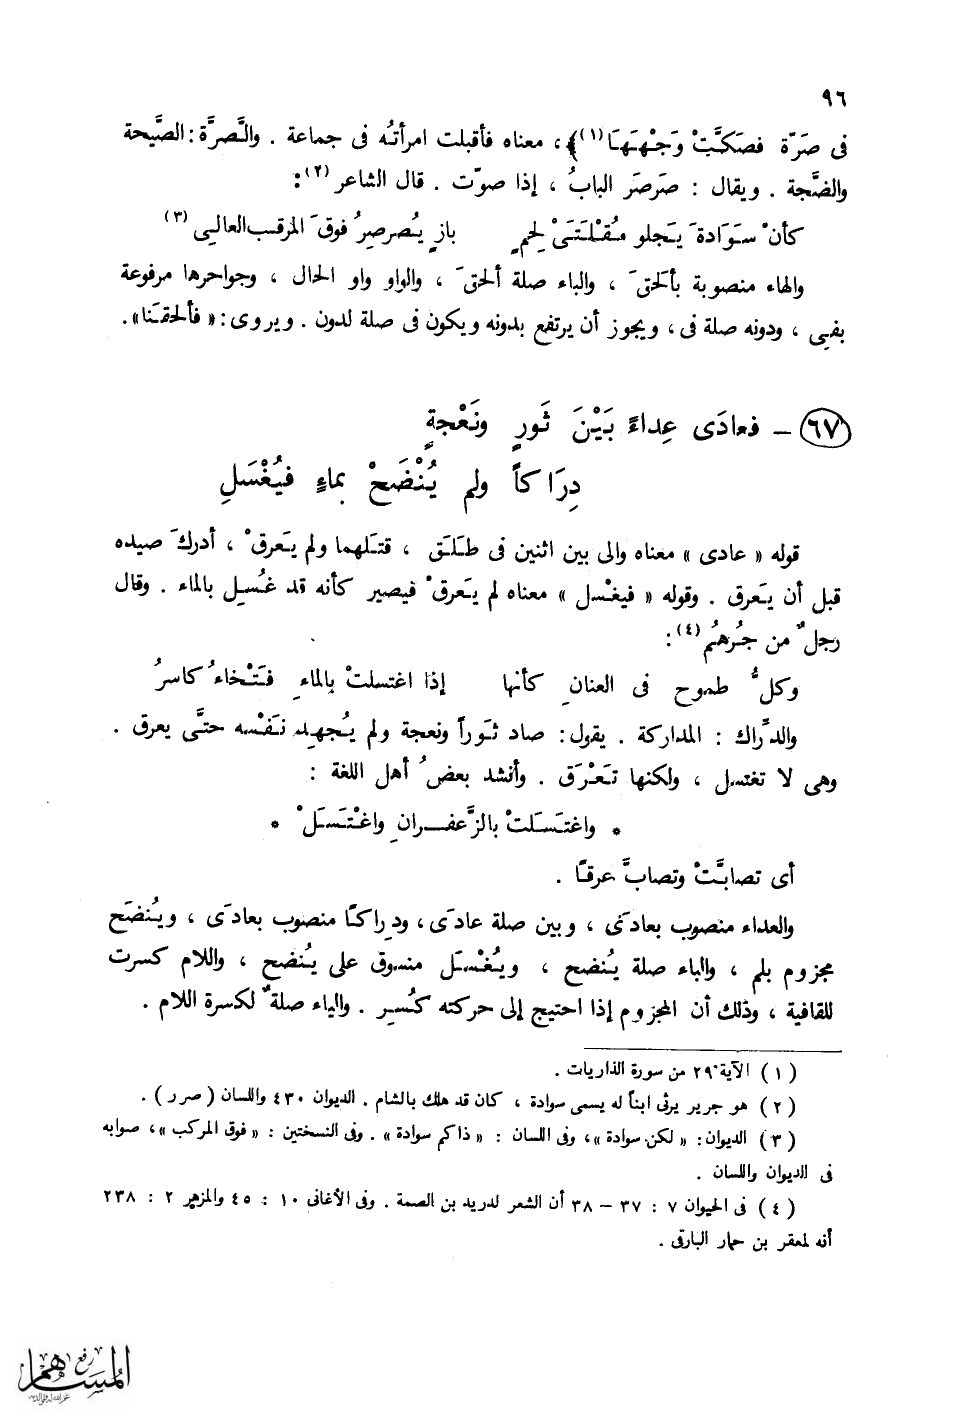 ٩٦
فى صَرّة فصَكَّتْ وَجْهَهَا(١)﴾، معناه فأقبلت امرأتُه فى جماعة . والصَّرَّة: الصَّيحة
والضَّجة . ويقال : صَرصَر البابُ ، إذا صوّت . قال الشاعر (٢):
كأنْ سَوَادةَ يَجلو مُقْلَتَىْ لحمٍ بازٍ يُصرصِرُ فوقَ المَرقَب العالِى (٣)
والهاء منصوبة بألحَقَ ، والباء صلة ألحقَ ، والواو واو الحال ، وجواحرها مرفوعة
بفى ، ودونه صلة فى ، ويجوز أن يرتفع بدونه ويكون فى صلة لدون . ويروى: « فألحقَنا ».
٦٧ – فعادَى عِداءً بَيْنَ ثَورٍ ونَعْجةٍ
دِرَاكاً ولم يُنْضَحْ بماءٍ فيُغْسَلِ
قوله « عادى » معناه والى بين اثنين فى طَلَق ، قتَلهما ولم يَعرقْ ، أدركَ صيده
قبل أن يَعرق . وقوله « فيغْسل » معناه لم يَعرقْ فيصير كأنه قد غُسِل بالماء . وقال
رجلٌ من جُرهُم (٤):
وكلُّ طموح فى العنانِ كأنها إذا اغتسلتْ بالماءِ فَتْخاءُ كاسرُ
والدِّراك : المداركة . يقول: صاد ثوراً ونعجة ولم يُجهِد نَفْسه حتَّى يعرق .
وهى لا تغتسل ، ولكنها تَعْرَق . وأنشد بعضُ أهل اللغة :
* واغتسَلتْ بالزَّعفرانِ واغْتَسَلْ *
أى تصابَّتْ وتصابَّ عرقًا .
والعداء منصوب بعادَى ، وبين صلة عادَى، ودِراكًا منصوب بعادَى ، ويُنضَح
مجزوم بلم ، والباء صلة يُنضح ، ويُغْسَل منسوق على يُنضح ، واللام كسرت
للقافية ، وذلك أن المجزوم إذا احتيج إلى حركته كُسِر . والياء صلةٌ لكسرة اللام .
(١) الآية ٢٩ من سورة الذاريات .
(٢) هو جرير يرثى ابناً له يسمى سوادة ، كان قد هلك بالشام . الديوان ٤٣٠ واللسان (صرر) .
(٣) الديوان: « لكن سوادة »، وفى اللسان : « ذاكم سوادة ». وفى النسختين : « فوق المركب »، صوابه
فى الديوان واللسان .
(٤) فى الحيوان ٧ : ٣٧ – ٣٨ أن الشعر لدريد بن الصمة . وفى الأغانى ١٠ : ٤٥ والمزهر ٢ : ٢٣٨
أنه لمعقر بن حمار البارقى .